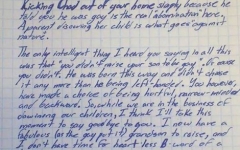 Kicking Chad out of your home simply because he
told you he was gay is the real abomination here.
A parent disowning her child is what goes against
nature.
The only intelligent thing I heard you saying in all this
was that "you didn't raise your son to be gay". Of course
you didn't. He was born this way and didn't choose
it any more than he being left-handed. You however,
have made a choice of being hurtful, narrow-minded
and backward. So, while we are in the business of
disowning our children, I think I'll take this
moment to say goodbye to you. I now have a
fabulous (as the gay put it) grandson to raise, and
I don't have time for heart-less B-word of a